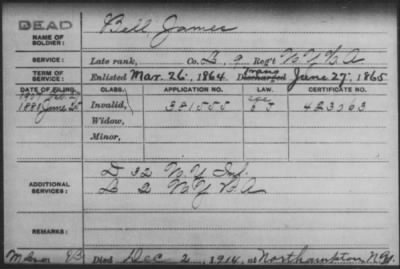 DEAD
NAME OF SOLDIER: Bell James
SERVICE: Late rank, Co. L, 9 Reg't N Y H A
TERM OF SERVICE: Enlisted Mar. 26, 1864 Trans Discharged June 27, 1865
DATE OF FILING. CLASS. APPLICATION NO. LAW. CERTIFICATE NO.
1907
1880 June 25 Invalid, 381555 423063
Widow,
Minor,
ADDITIONAL SERVICES: D 32 N.Y. Inf.
L 2 N Y H A
REMARKS:
Died Dec 2, 1914, at Northampton N.Y.